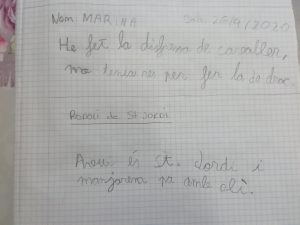 Nom MARINA
He fet la disfressa de cavaller,
no tenia res per fer la de drac.
Rodari de St Jordi
Avui és St. Jordi i
manjarem pa amb oli.